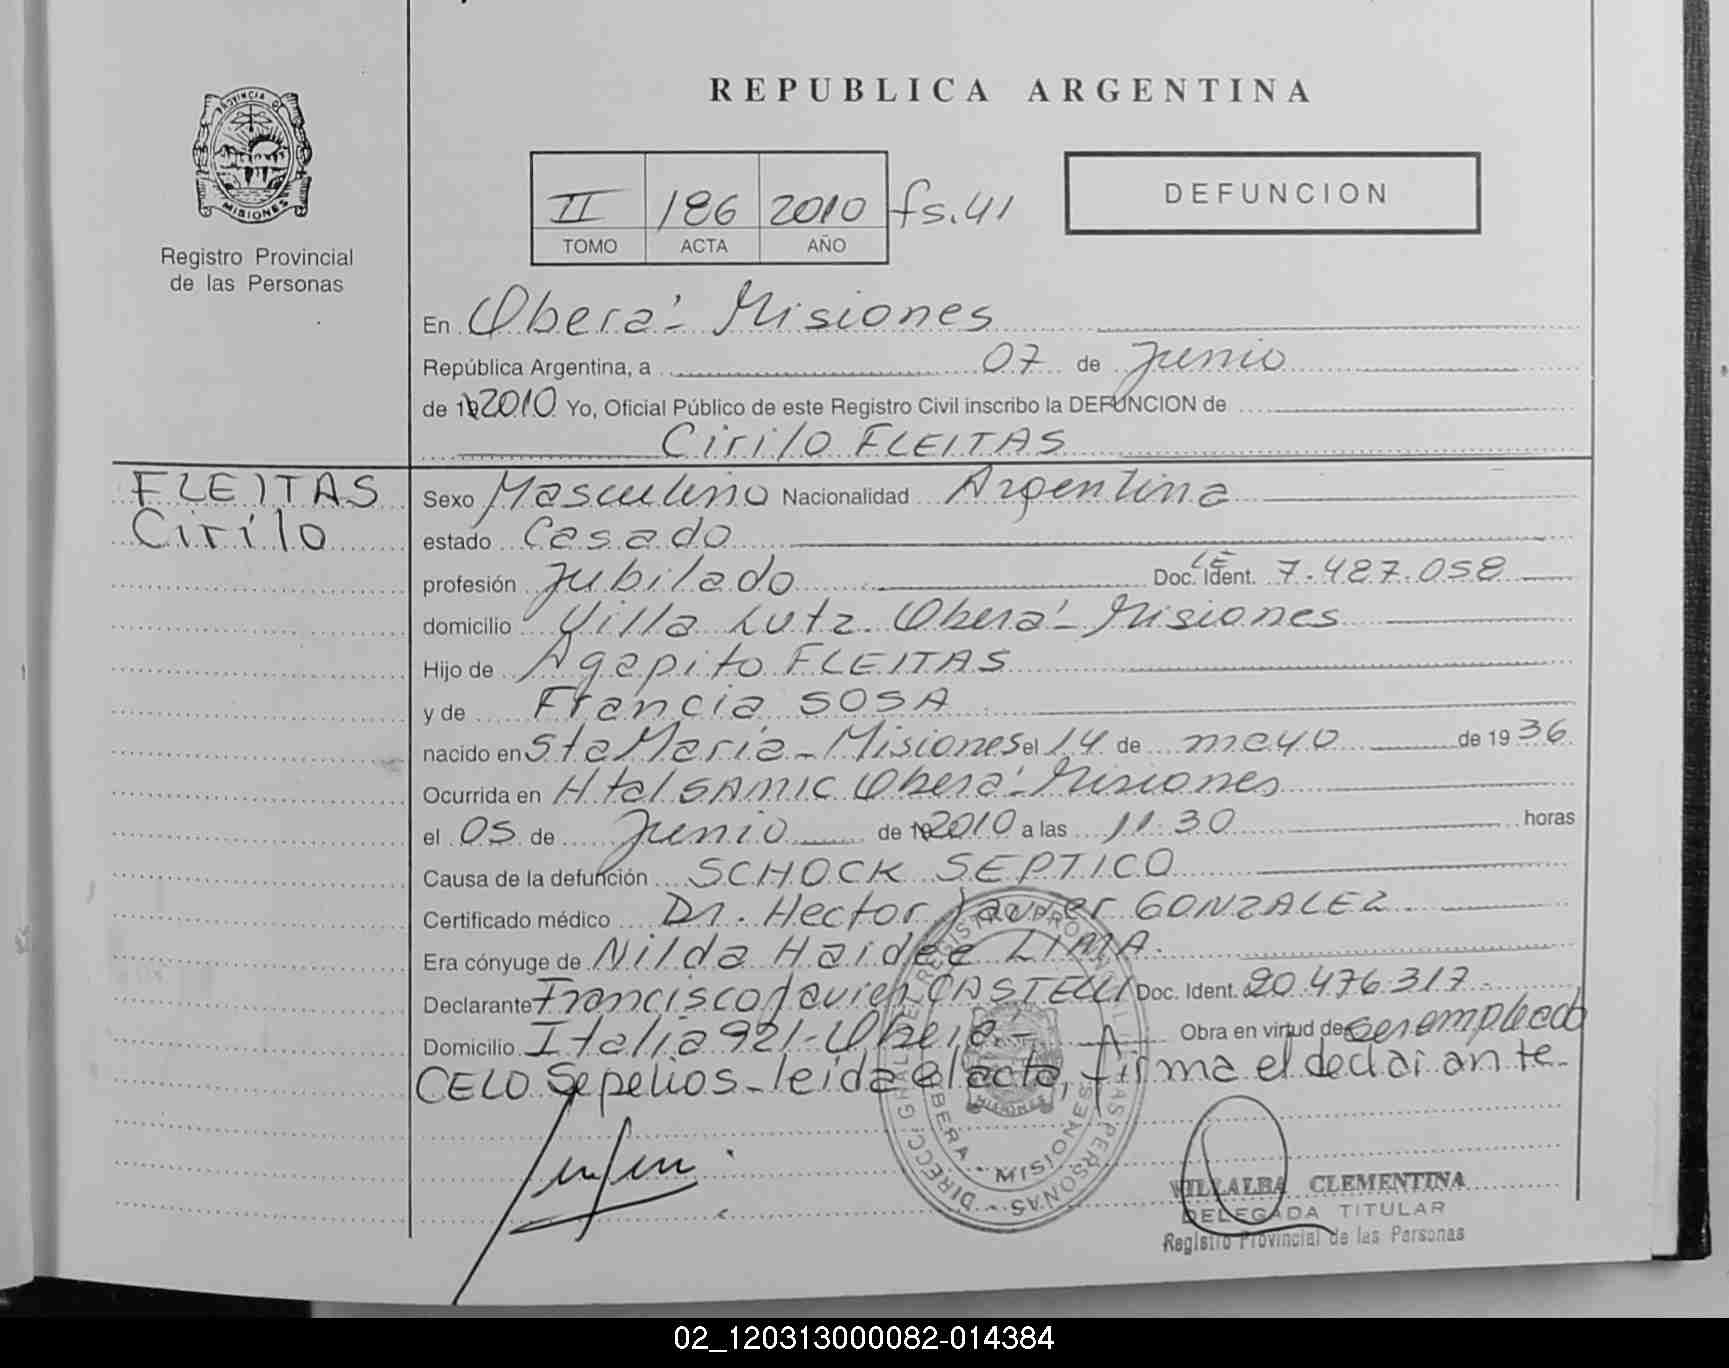 REPUBLICA ARGENTINA
PROVINCIA D
MISIONES
Registro Provincial
de las Personas
II 186 2010 fs.41
TOMO ACTA AÑO
DEFUNCION
En Oberá - Misiones
República Argentina, a 07 de Junio
de 19 2010 Yo, Oficial Público de este Registro Civil inscribo la DEFUNCION de
Cirilo FLEITAS
FLEITAS
Cirilo
Sexo Masculino Nacionalidad Argentina
estado Casado
profesión Jubilado Doc. Ident. LE 7.487.058
domicilio Villa Lutz. Oberá - Misiones
Hijo de Agapito FLEITAS
y de Francia SOSA
nacido en Sta María - Misiones el 14 de mayo de 1936
Ocurrida en Htal SAMIC Oberá - Misiones
el 05 de Junio de 19 2010 a las 11.30 horas
Causa de la defunción SCHOCK SEPTICO
Certificado médico Dr. Hector Javier GONZALEZ
Era cónyuge de Nilda Haidee LIMA.
Declarante Francisco Javier CASTELLI Doc. Ident. 20.476.317
Domicilio Italia 921 - Oberá - Obra en virtud de ser empleado
CELO Sepelios - leida el acta, firma el declarante -
DIRECC. GRAL. DEL REGISTRO PROVINCIAL DE LAS PERSONAS
OBERA - MISIONES
MISIONES
VILLALBA CLEMENTINA
DELEGADA TITULAR
Registro Provincial de las Personas
02_120313000082-014384